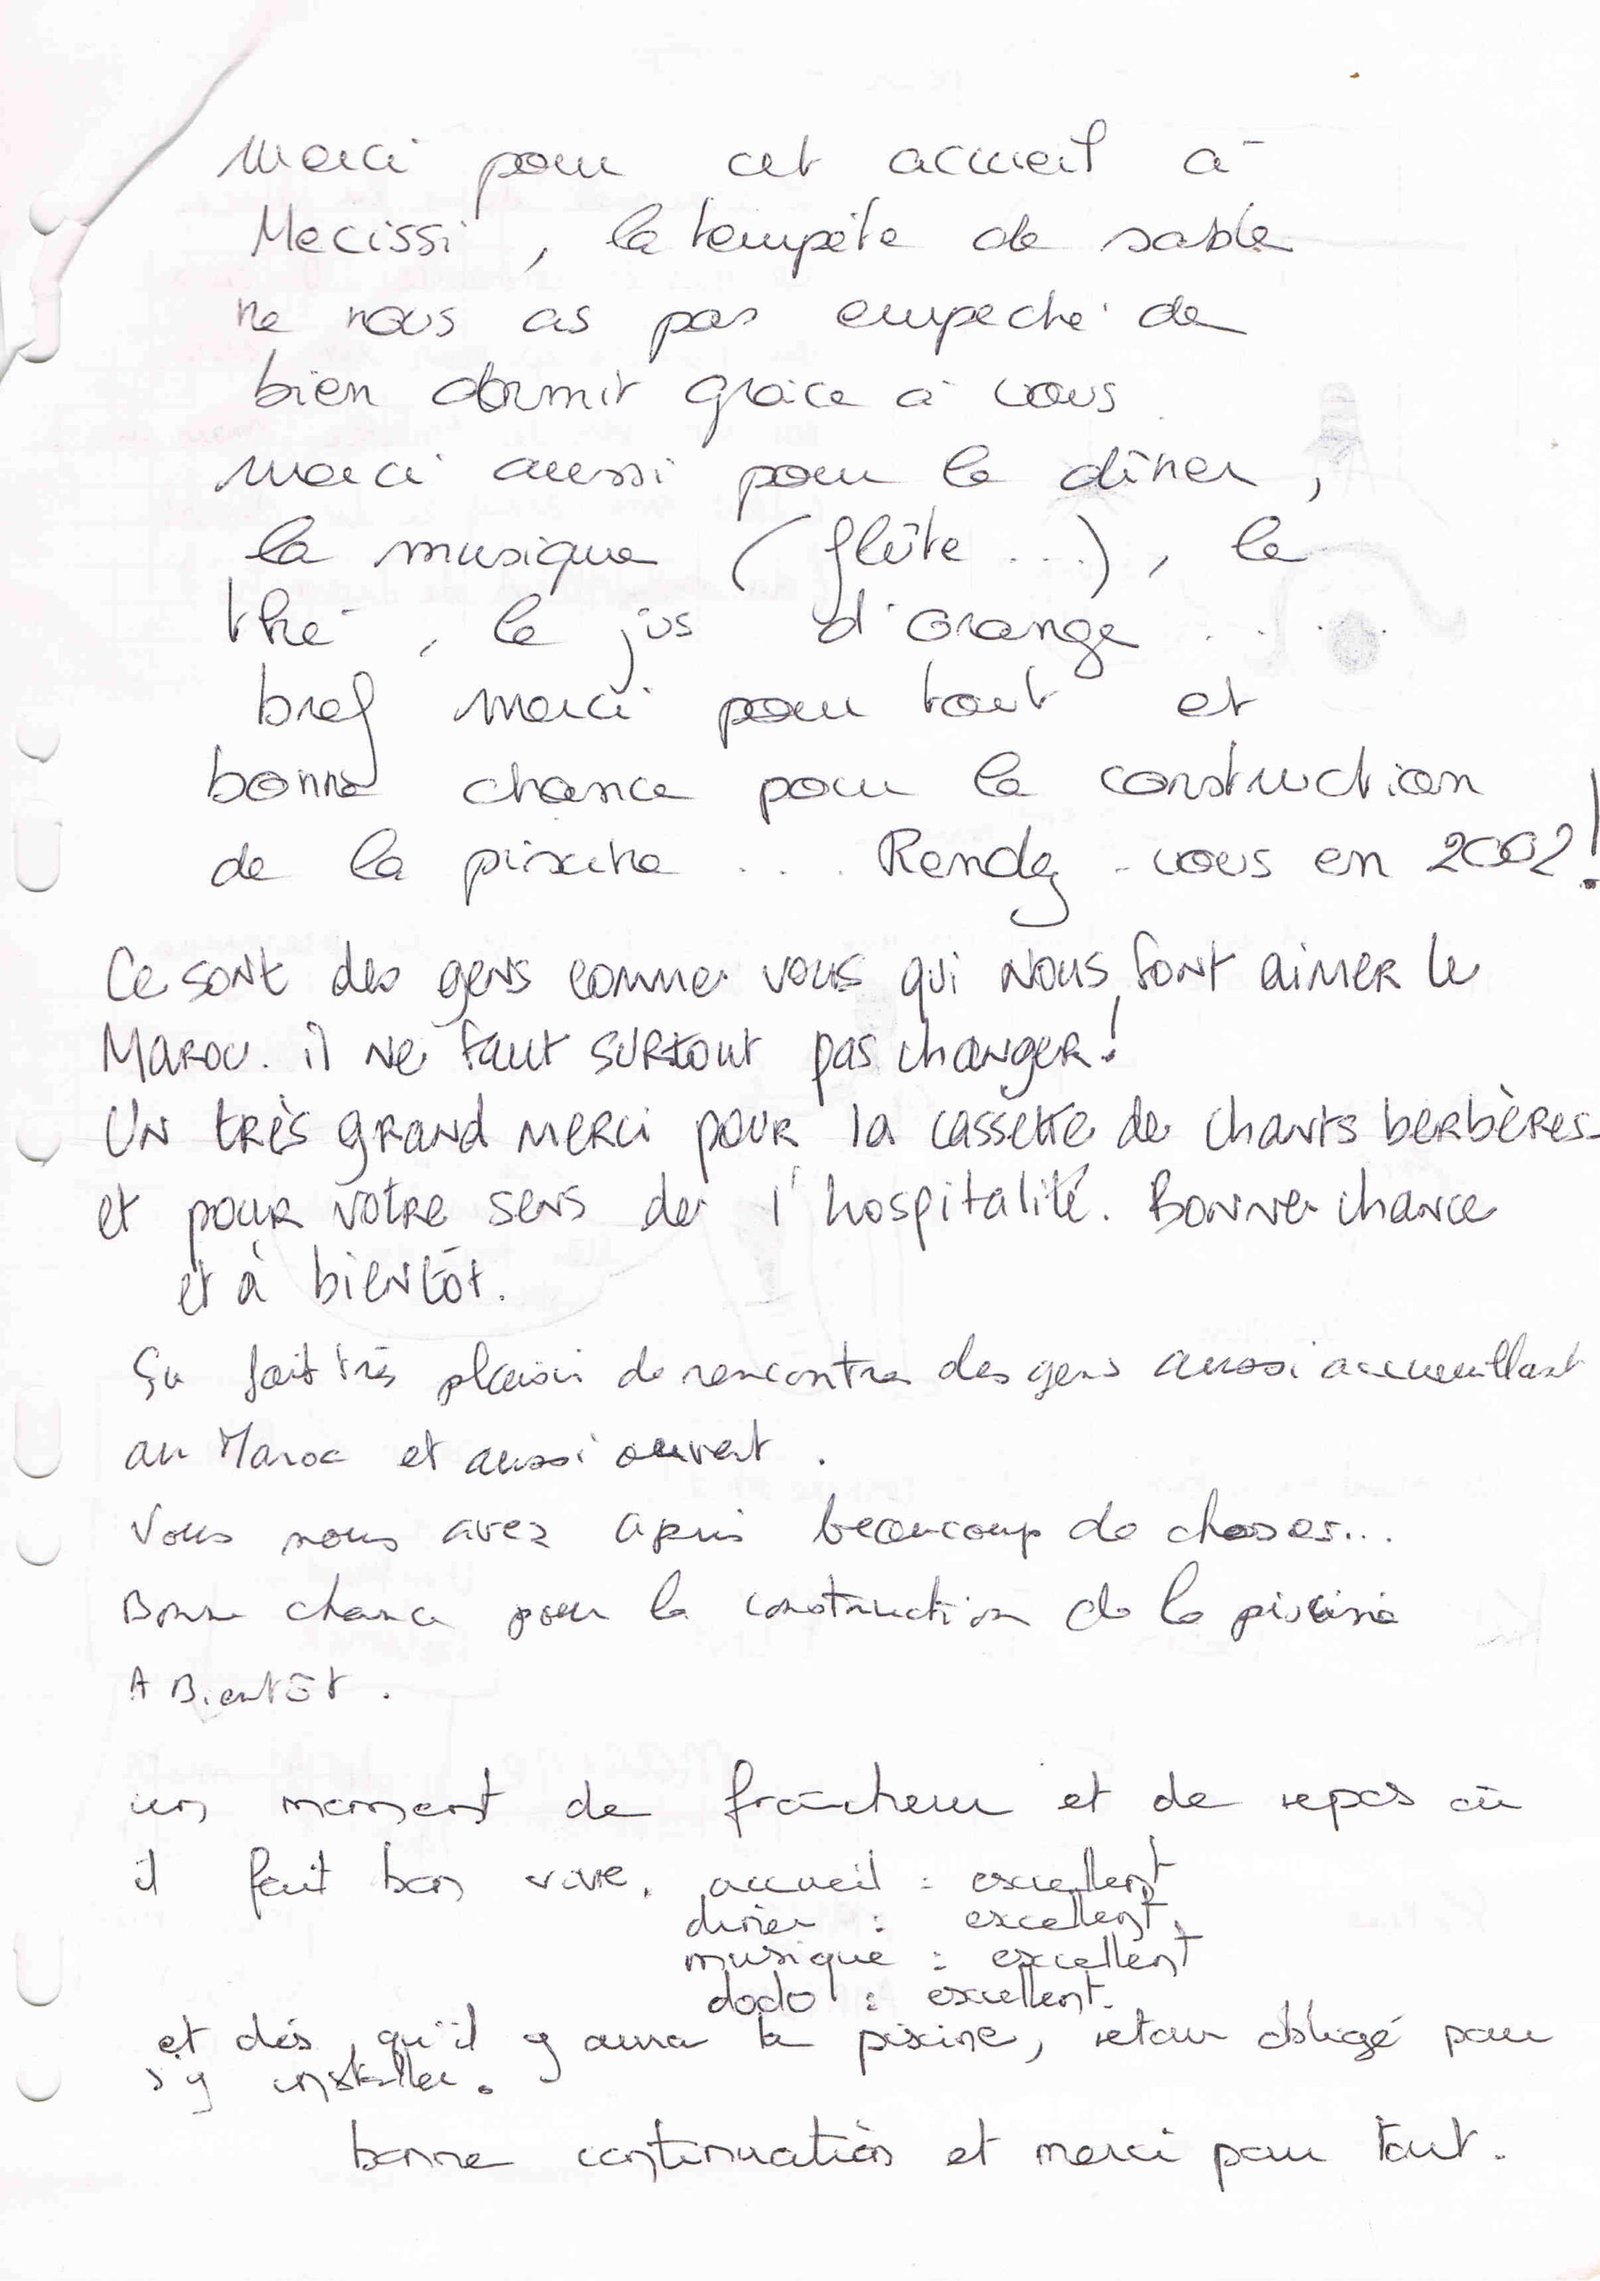 merci pour cet accueil à
Mecissi, la tempête de sable
ne nous as pas empeché de
bien dormir grâce à vous.
merci aussi pour le dîner,
la musique (flûte ...), le
thé, le jus d'orange ....
bref merci pour tout et
bonne chance pour la construction
de la piscine ... Rendez-vous en 2002!
Ce sont des gens comme vous qui nous font aimer le
Maroc. il ne faut surtout pas changer!
Un très grand merci pour la cassette de chants berbères
et pour votre sens de l'hospitalité. Bonne chance
et à bientôt.
Ça fait très plaisir de rencontrer des gens aussi accueuillant
au Maroc et aussi ouvert.
Vous nous avez apris beaucoup de choses...
Bonne chance pour la construction de la piscine
A Bientôt.
un moment de fraîcheur et de repos où
il fait bon vivre. accueil : excellent
diner : excellent,
musique : excellent
dodo : excellent.
et dès qu'il y aura la piscine, retour obligé pour
s'y installer.
bonne continuation et merci pour tout.